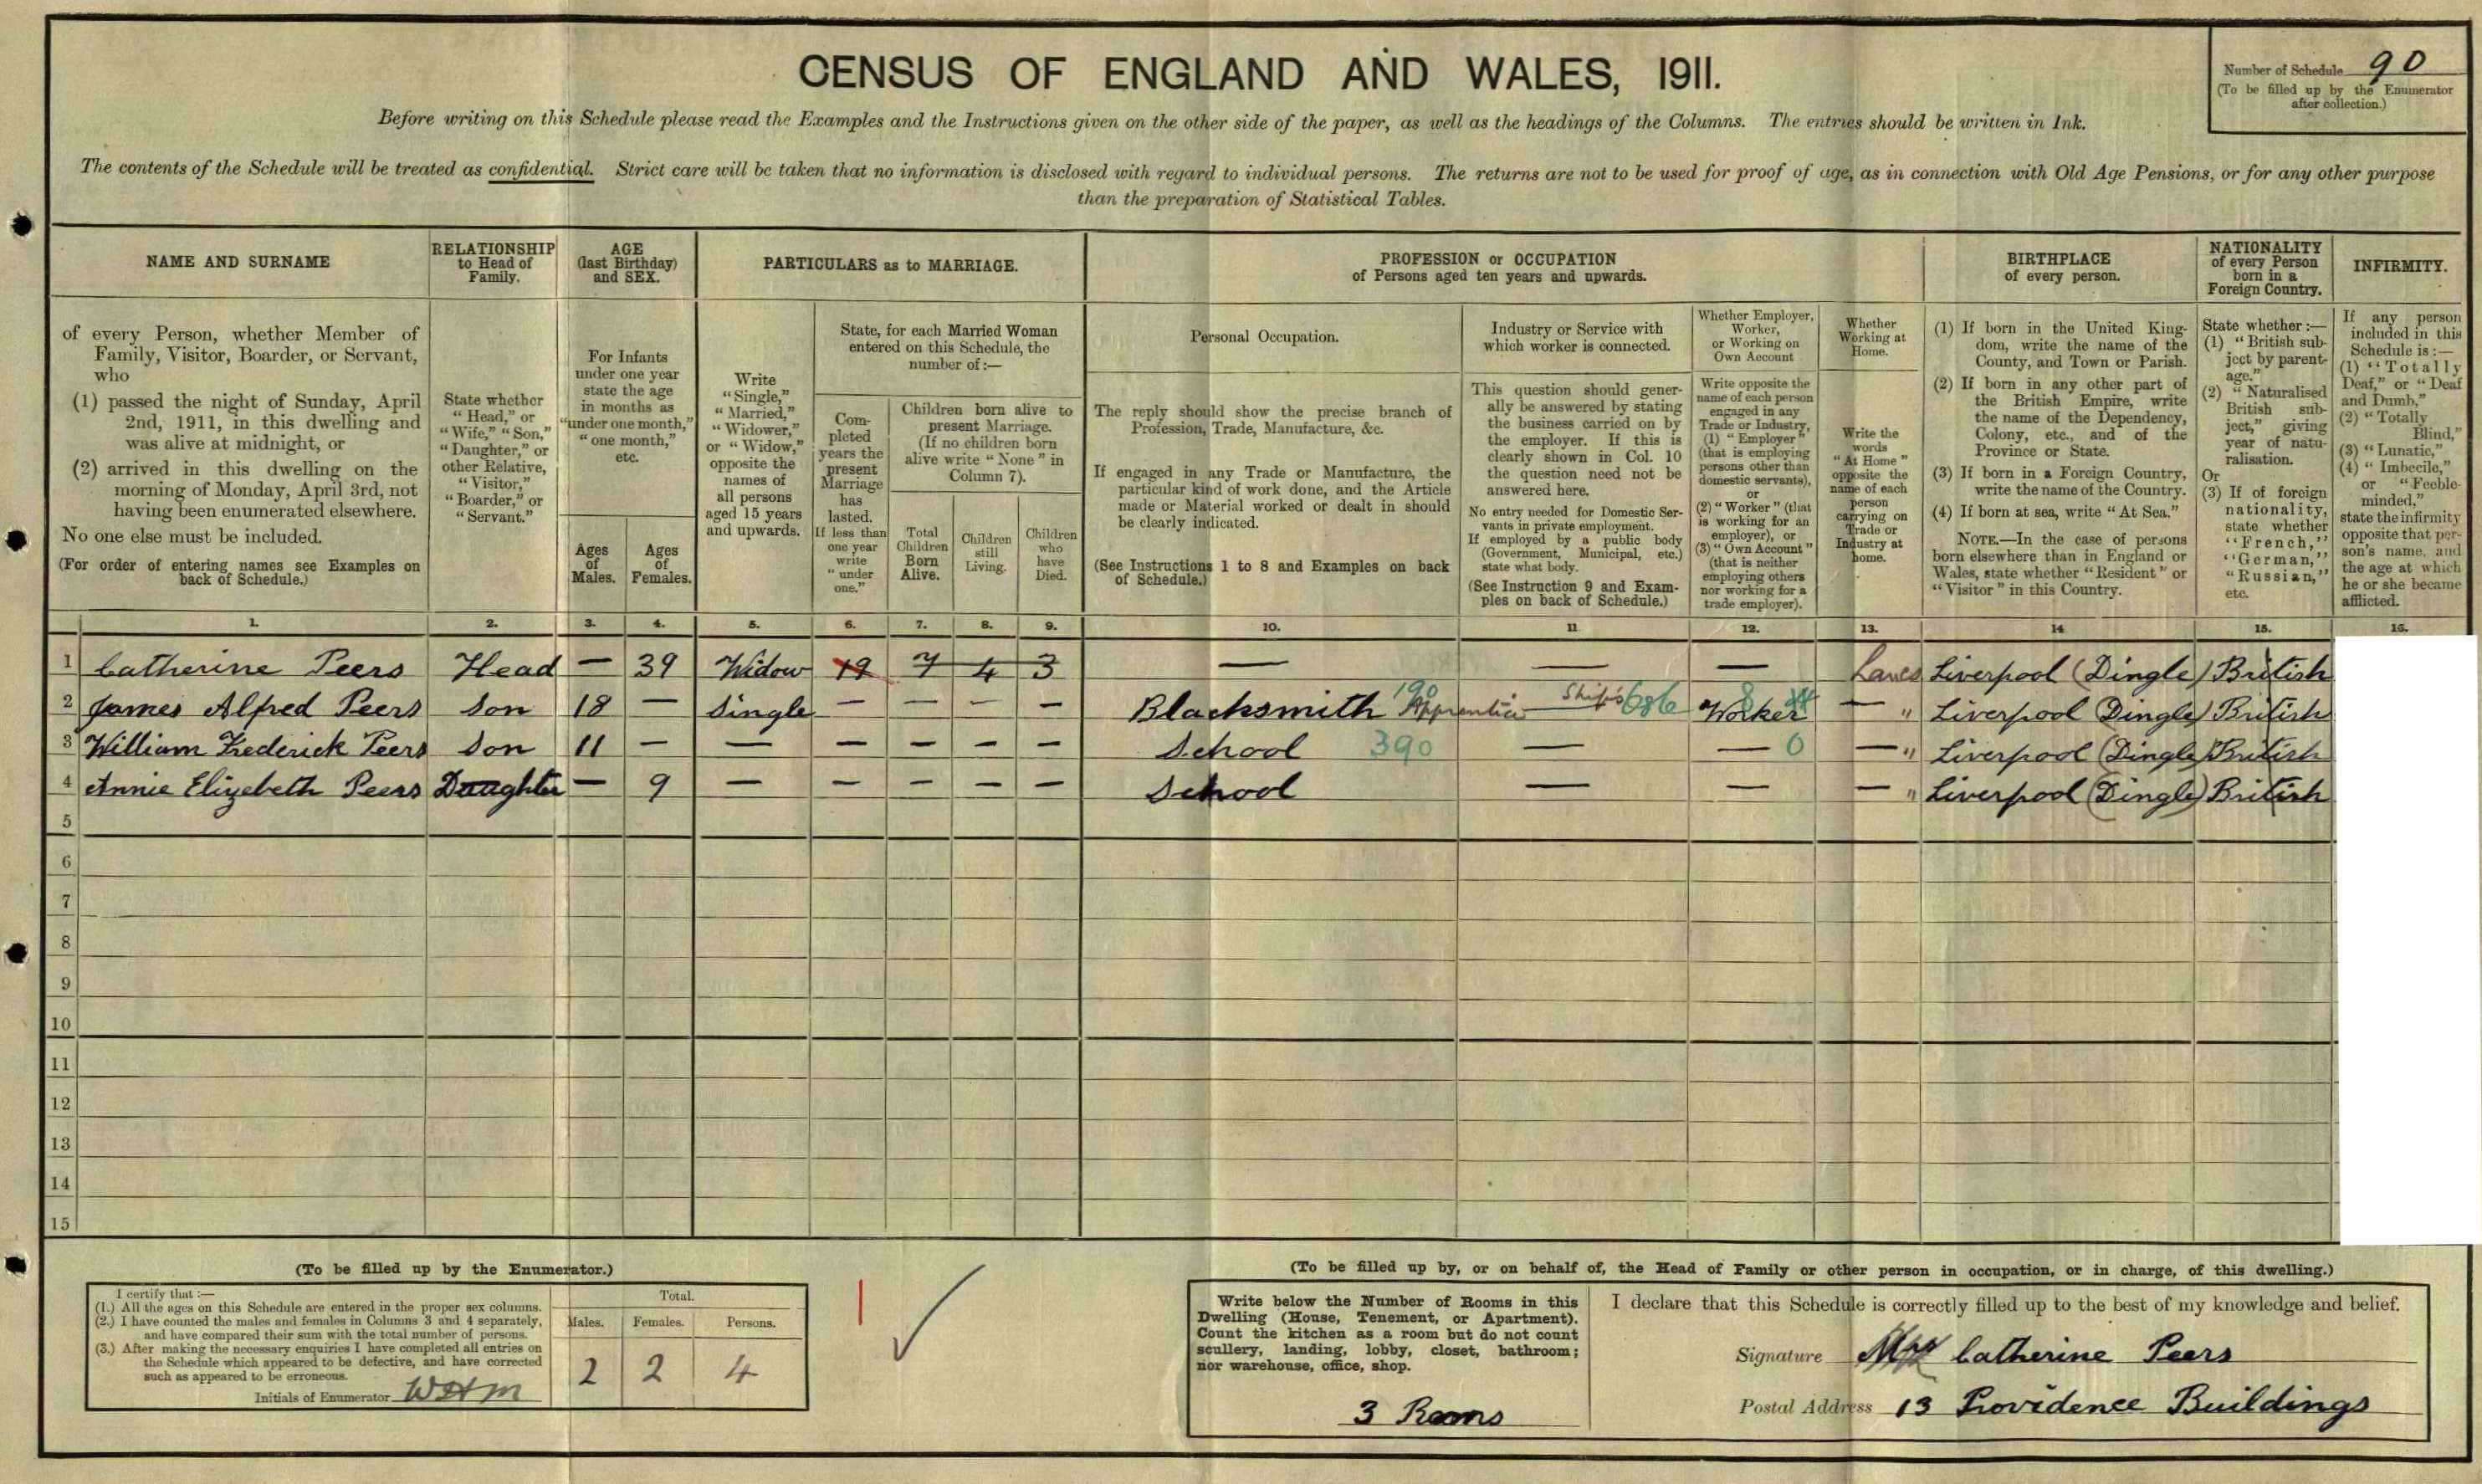 CENSUS OF ENGLAND AND WALES, 1911.
Number of Schedule 90
(To be filled up by the Enumerator
after collection.)
Before writing on this Schedule please read the Examples and the Instructions given on the other side of the paper, as well as the headings of the Columns. The entries should be written in Ink.
The contents of the Schedule will be treated as confidential. Strict care will be taken that no information is disclosed with regard to individual persons. The returns are not to be used for proof of age, as in connection with Old Age Pensions, or for any other purpose
than the preparation of Statistical Tables.
NAME AND SURNAME
of every Person, whether Member of
Family, Visitor, Boarder, or Servant,
who
(1) passed the night of Sunday, April
2nd, 1911, in this dwelling and
was alive at midnight, or
(2) arrived in this dwelling on the
morning of Monday, April 3rd, not
having been enumerated elsewhere.
No one else must be included.
(For order of entering names see Examples on
back of Schedule.)
RELATIONSHIP
to Head of
Family.
State whether
"Head," or
"Wife," "Son,"
"Daughter," or
other Relative,
"Visitor,"
"Boarder," or
"Servant."
AGE
(last Birthday)
and SEX.
For Infants
under one year
state the age
in months as
"under one month,"
"one month,"
etc.
Ages
of
Males.
Ages
of
Females.
PARTICULARS as to MARRIAGE.
Write
"Single,"
"Married,"
"Widower,"
or "Widow,"
opposite the
names of
all persons
aged 15 years
and upwards.
State, for each Married Woman
entered on this Schedule, the
number of:—
Com-
pleted
years the
present
Marriage
has
lasted.
If less than
one year
write
"under
one."
Children born alive to
present Marriage.
(If no children born
alive write "None" in
Column 7).
Total
Children
Born
Alive.
Children
still
Living.
Children
who
have
Died.
PROFESSION or OCCUPATION
of Persons aged ten years and upwards.
Personal Occupation.
The reply should show the precise branch of
Profession, Trade, Manufacture, &c.
If engaged in any Trade or Manufacture, the
particular kind of work done, and the Article
made or Material worked or dealt in should
be clearly indicated.
(See Instructions 1 to 8 and Examples on back
of Schedule.)
Industry or Service with
which worker is connected.
This question should gener-
ally be answered by stating
the business carried on by
the employer. If this is
clearly shown in Col. 10
the question need not be
answered here.
No entry needed for Domestic Ser-
vants in private employment.
If employed by a public body
(Government, Municipal, etc.)
state what body.
(See Instruction 9 and Exam-
ples on back of Schedule.)
Whether Employer,
Worker,
or Working on
Own Account
Write opposite the
name of each person
engaged in any
Trade or Industry,
(1) "Employer"
(that is employing
persons other than
domestic servants),
or
(2) "Worker" (that
is working for an
employer), or
(3) "Own Account"
(that is neither
employing others
nor working for a
trade employer).
Whether
Working at
Home.
Write the
words
"At Home"
opposite the
name of each
person
carrying on
Trade or
Industry at
home.
BIRTHPLACE
of every person.
(1) If born in the United King-
dom, write the name of the
County, and Town or Parish.
(2) If born in any other part of
the British Empire, write
the name of the Dependency,
Colony, etc., and of the
Province or State.
(3) If born in a Foreign Country,
write the name of the Country.
(4) If born at sea, write "At Sea."
NOTE.—In the case of persons
born elsewhere than in England or
Wales, state whether "Resident" or
"Visitor" in this Country.
NATIONALITY
of every Person
born in a
Foreign Country.
State whether:—
(1) "British sub-
ject by parent-
age."
(2) "Naturalised
British sub-
ject," giving
year of natu-
ralisation.
Or
(3) If of foreign
nationality,
state whether
"French,"
"German,"
"Russian,"
etc.
INFIRMITY.
If any person
included in this
Schedule is:—
(1) "Totally
Deaf," or "Deaf
and Dumb,"
(2) "Totally
Blind,"
(3) "Lunatic,"
(4) "Imbecile,"
or "Feeble-
minded,"
state the infirmity
opposite that per-
son's name, and
the age at which
he or she became
afflicted.
1. 2. 3. 4. 5. 6. 7. 8. 9. 10. 11 12. 13. 14 15. 16.
1 Catherine Peers Head — 39 Widow 19 7 4 3 — — — Lancs Liverpool (Dingle) British
2 James Alfred Peers Son 18 — Single — — — — Blacksmith 190 Apprentice Ship's 686 Worker — " Liverpool (Dingle) British
3 William Frederick Peers Son 11 — — — — — — School 390 — — 0 — " Liverpool (Dingle) British
4 Annie Elizebeth Peers Daughter — 9 — — — — — School — — — " Liverpool (Dingle) British
5
6
7
8
9
10
11
12
13
14
15
(To be filled up by the Enumerator.)
I certify that:—
(1.) All the ages on this Schedule are entered in the proper sex columns.
(2.) I have counted the males and females in Columns 3 and 4 separately,
and have compared their sum with the total number of persons.
(3.) After making the necessary enquiries I have completed all entries on
the Schedule which appeared to be defective, and have corrected
such as appeared to be erroneous.
Initials of Enumerator WHM
Total.
Males. Females. Persons.
2 2 4
(To be filled up by, or on behalf of, the Head of Family or other person in occupation, or in charge, of this dwelling.)
Write below the Number of Rooms in this
Dwelling (House, Tenement, or Apartment).
Count the kitchen as a room but do not count
scullery, landing, lobby, closet, bathroom;
nor warehouse, office, shop.
3 Rooms
I declare that this Schedule is correctly filled up to the best of my knowledge and belief.
Signature Mrs Catherine Peers
Postal Address 13 Providence Buildings